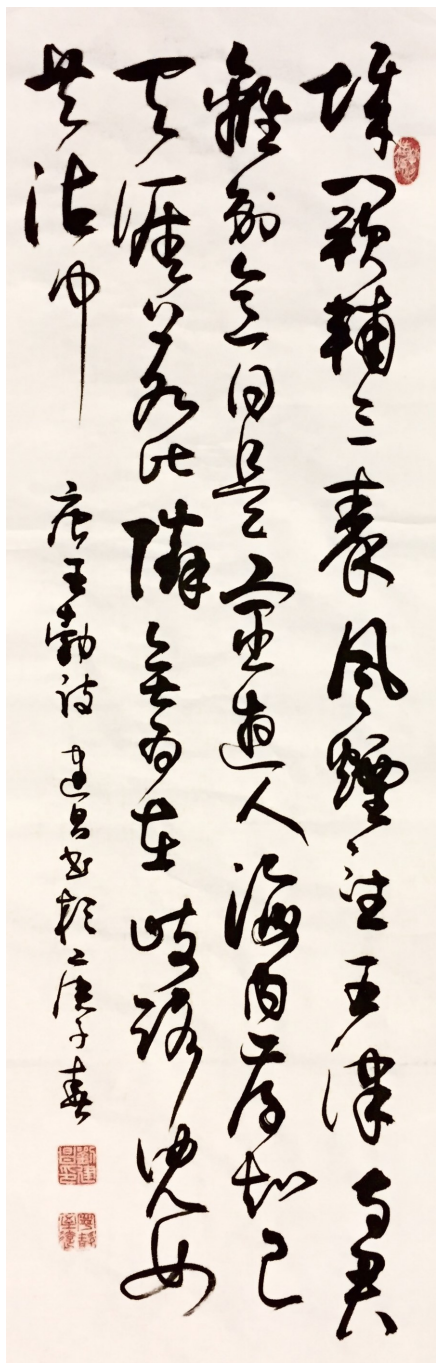 城闕輔三秦風煙望五津與君
離別意同是宦遊人海内存知己
天涯若比隣無為在歧路児女
共沾巾
唐王勃詩 建昌書於庚子春